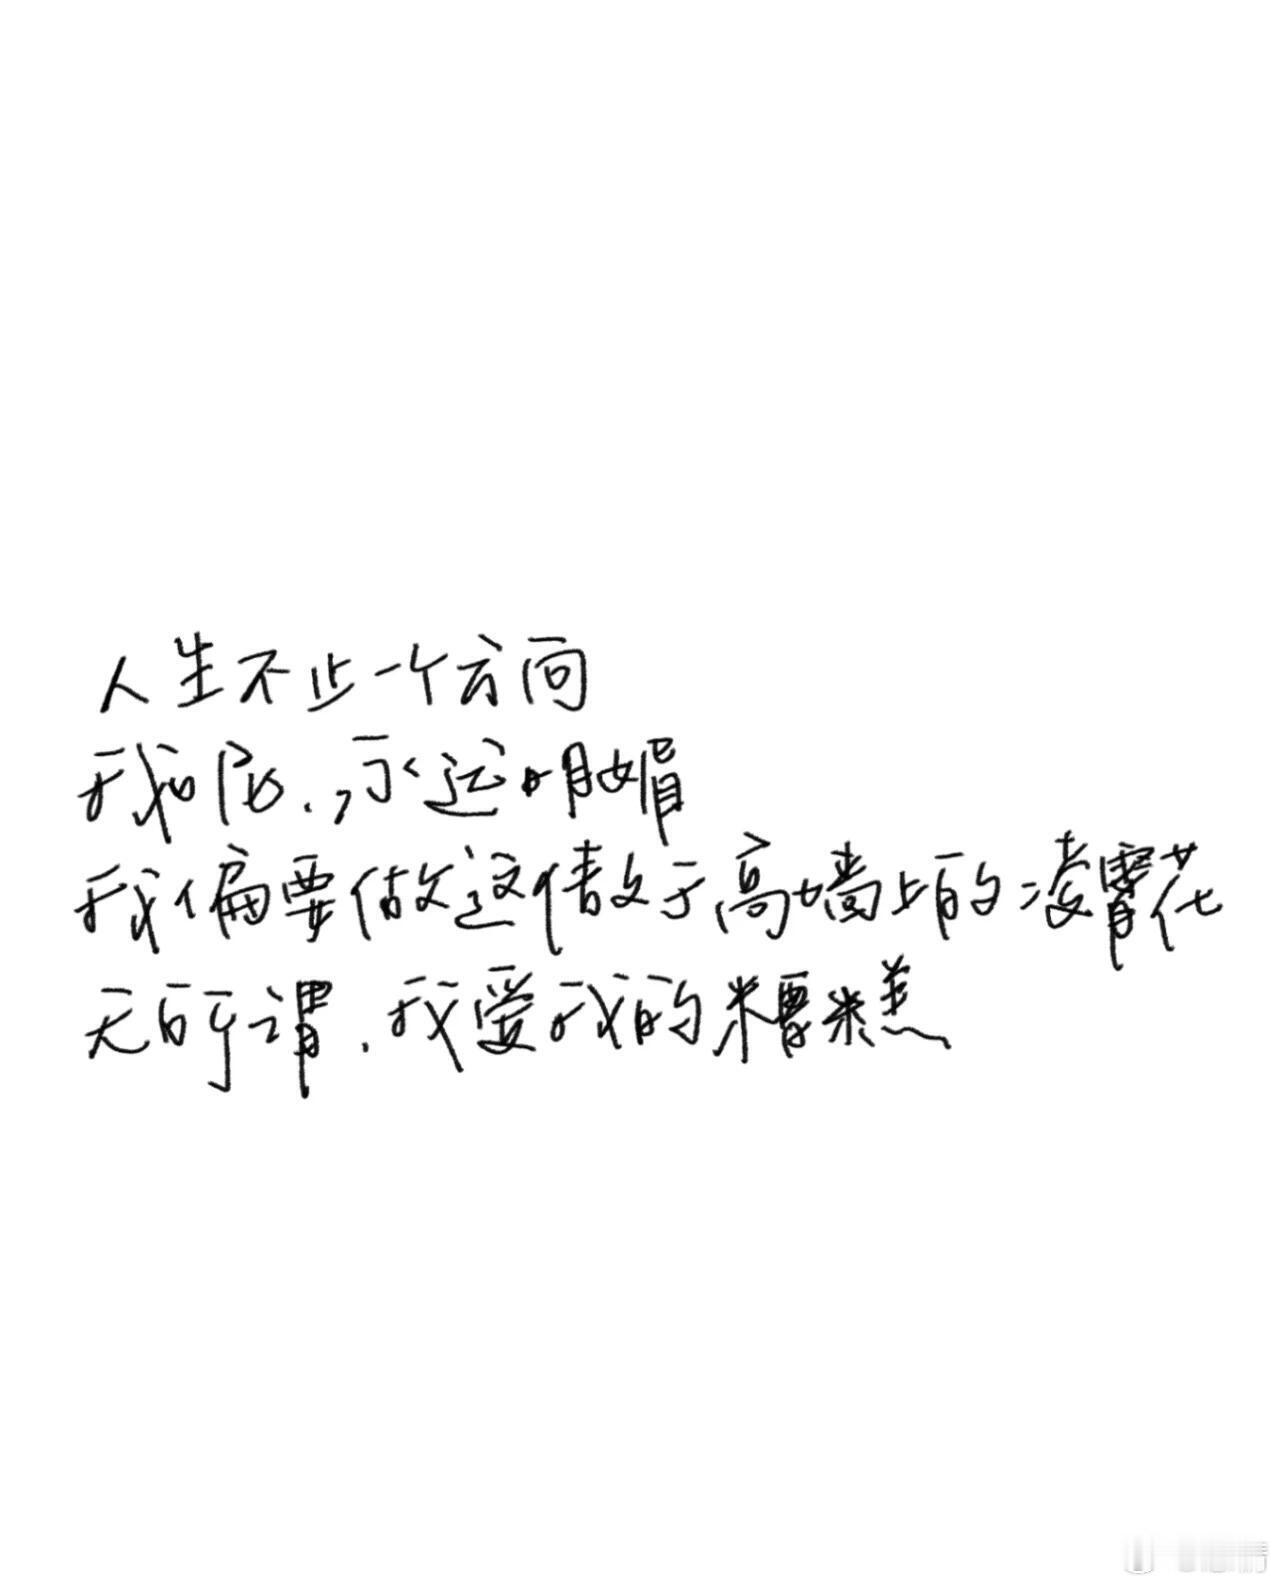 人生不止一个方向
我的心,永远明媚
我偏要做这借攻于高墙上的凌霄花
无所谓.我爱我的糟糕